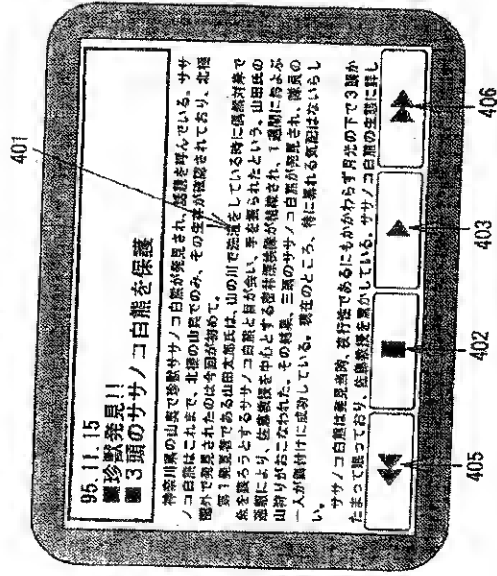 401
95.11.15
■珍獣発見!!
■3頭のササノコ白熊を保護
神奈川県の山奥で珍獣ササノコ白熊が発見され、話題を呼んでいる。ササ
ノコ白熊はこれまで、北極の山奥でのみ、その生存が確認されており、北極
圏外で発見されたのは今回が初めて。
第1発見者である山田太郎氏は、山の川で
をしている時に偶然対岸で
魚を
ろうとするササノコ白熊と目が会い、手を振られたという。山田氏の
通報により、佐
教授を中心とする密林探検隊が結成され、1週間におよぶ
山狩りがおこなわれた。その結果、三頭のササノコ白熊が発見され、隊員の
一人が餌付けに成功している。現在のところ、特に暴れる気配はないらし
い。
ササノコ白熊は発見当時、夜行性であるにもかかわらず月光の下で3頭か
たまって眠っており、佐
教授を驚かしている。ササノコ白熊の生態に詳し
405
402
403
406